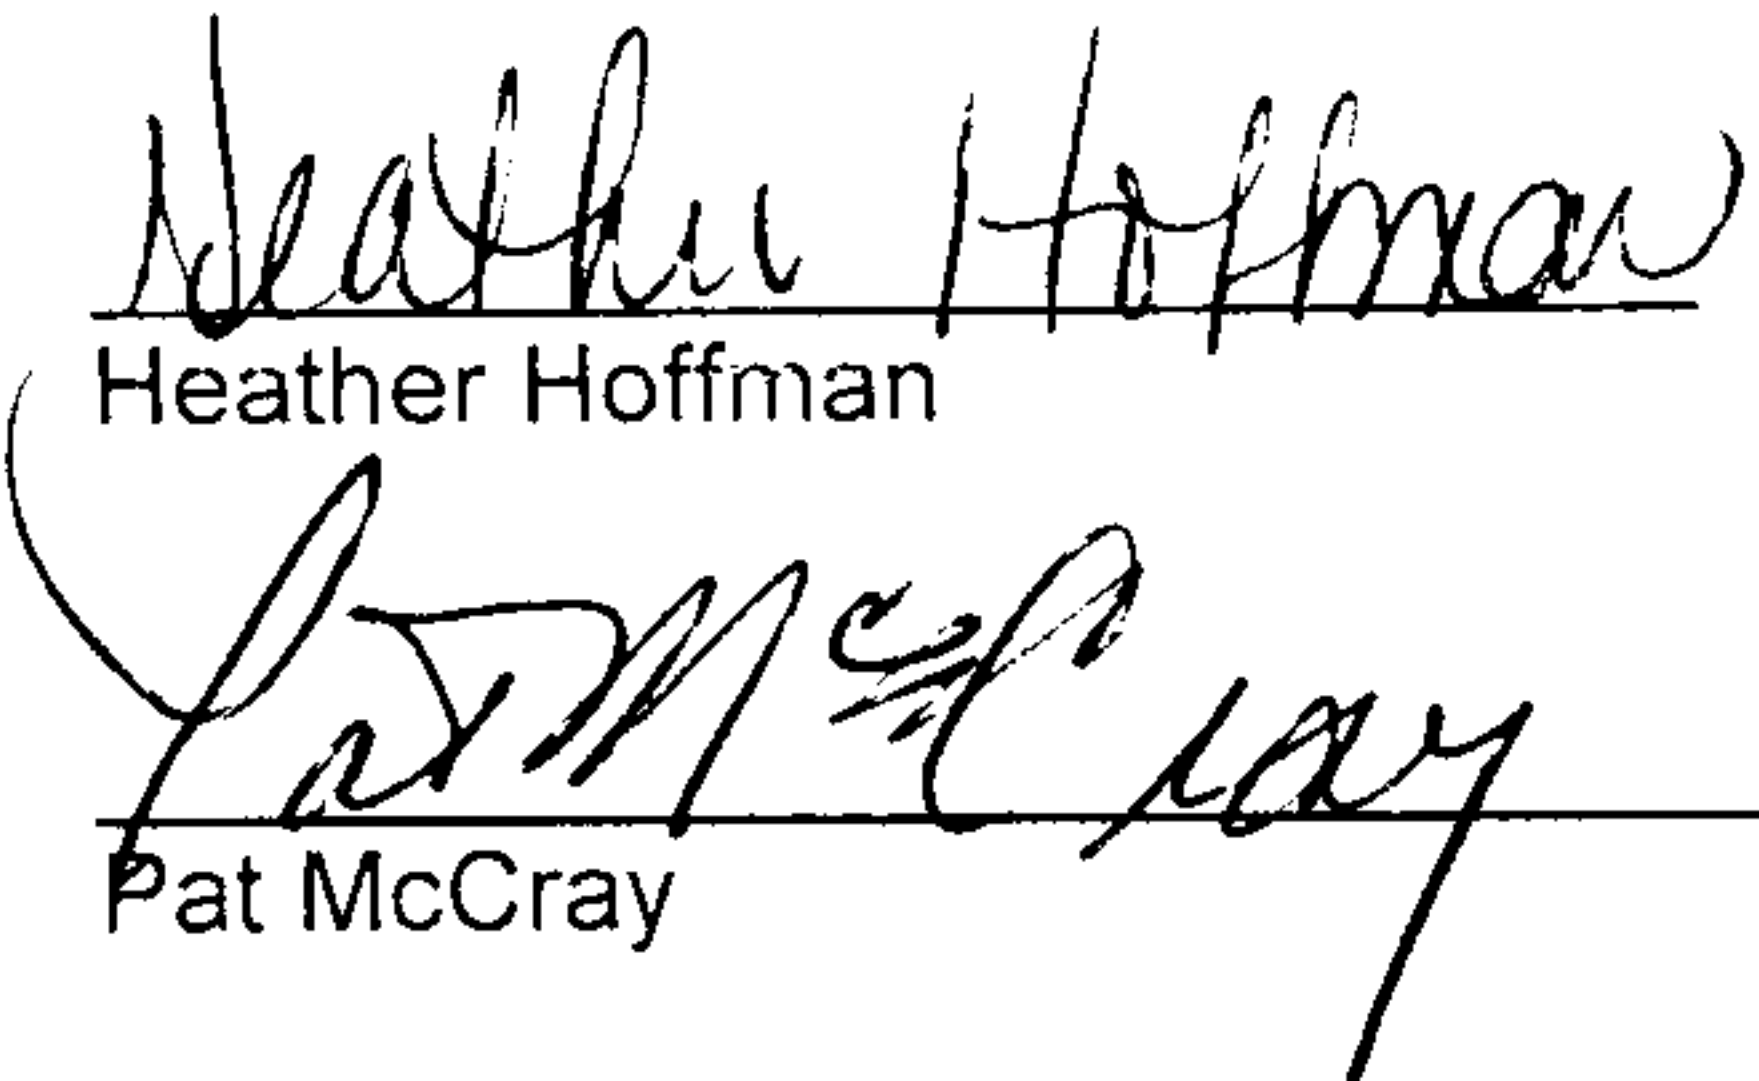 Heather Hoffman
Heather Hoffman
Pat McCray
Pat McCray